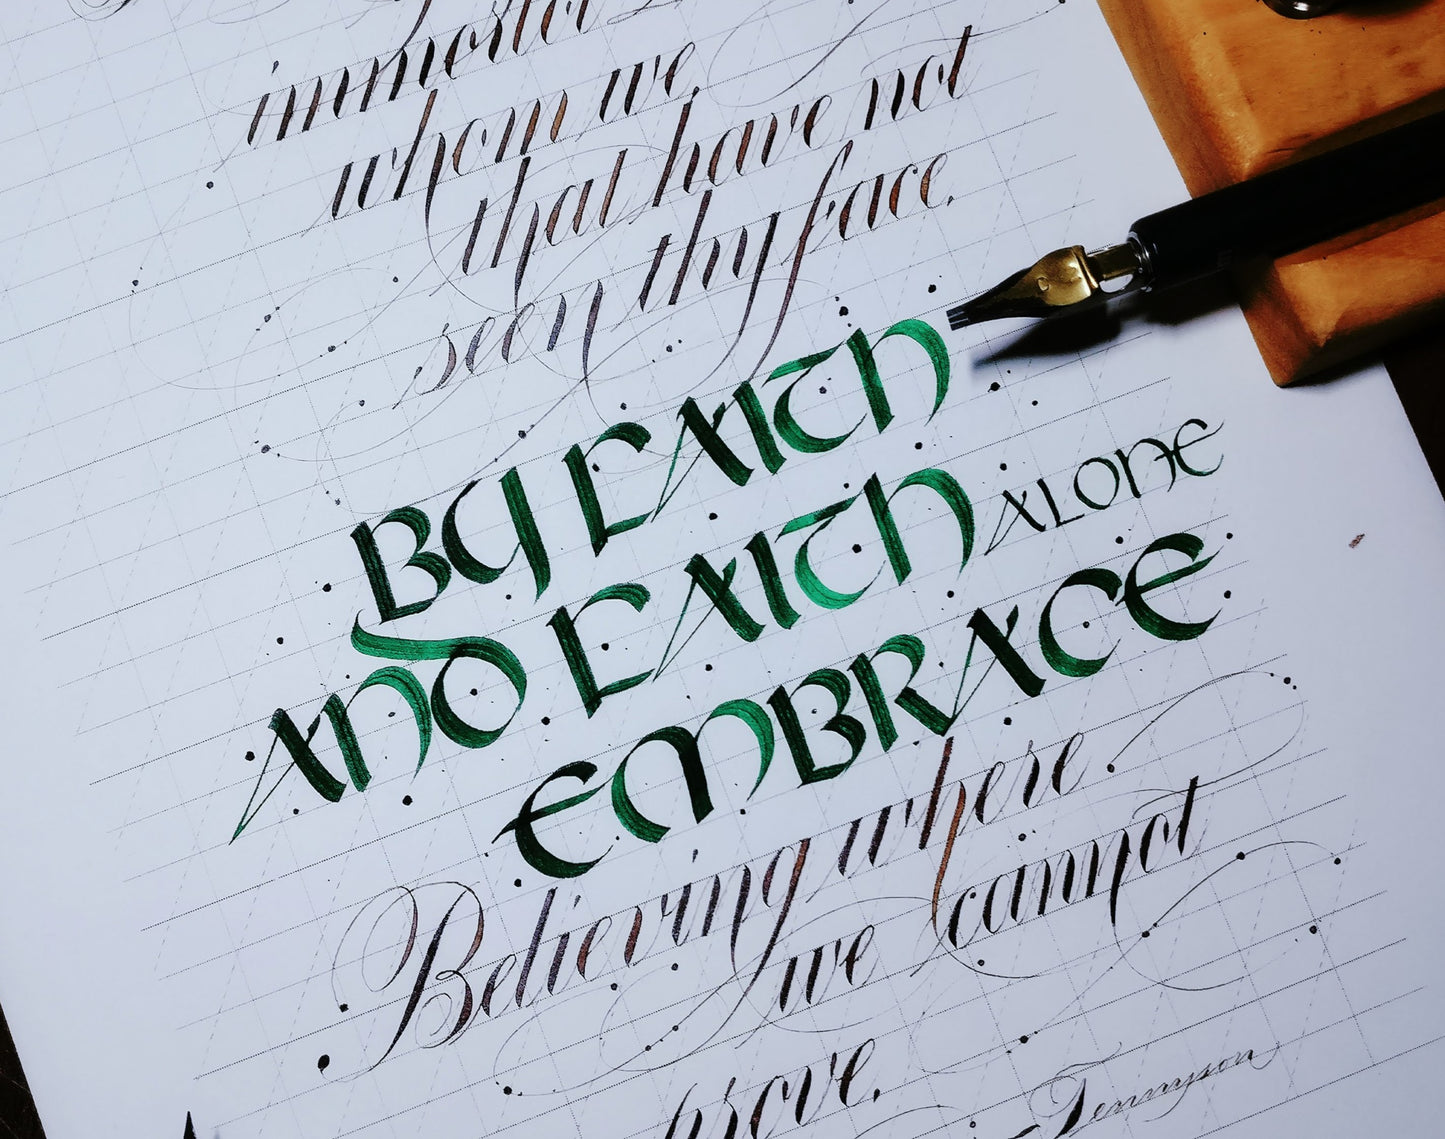 immortal
whom we,
that have not
seen thy face.
BY FAITH
AND FAITH ALONE
EMBRACE
Believing where
we cannot
prove.
Tennyson